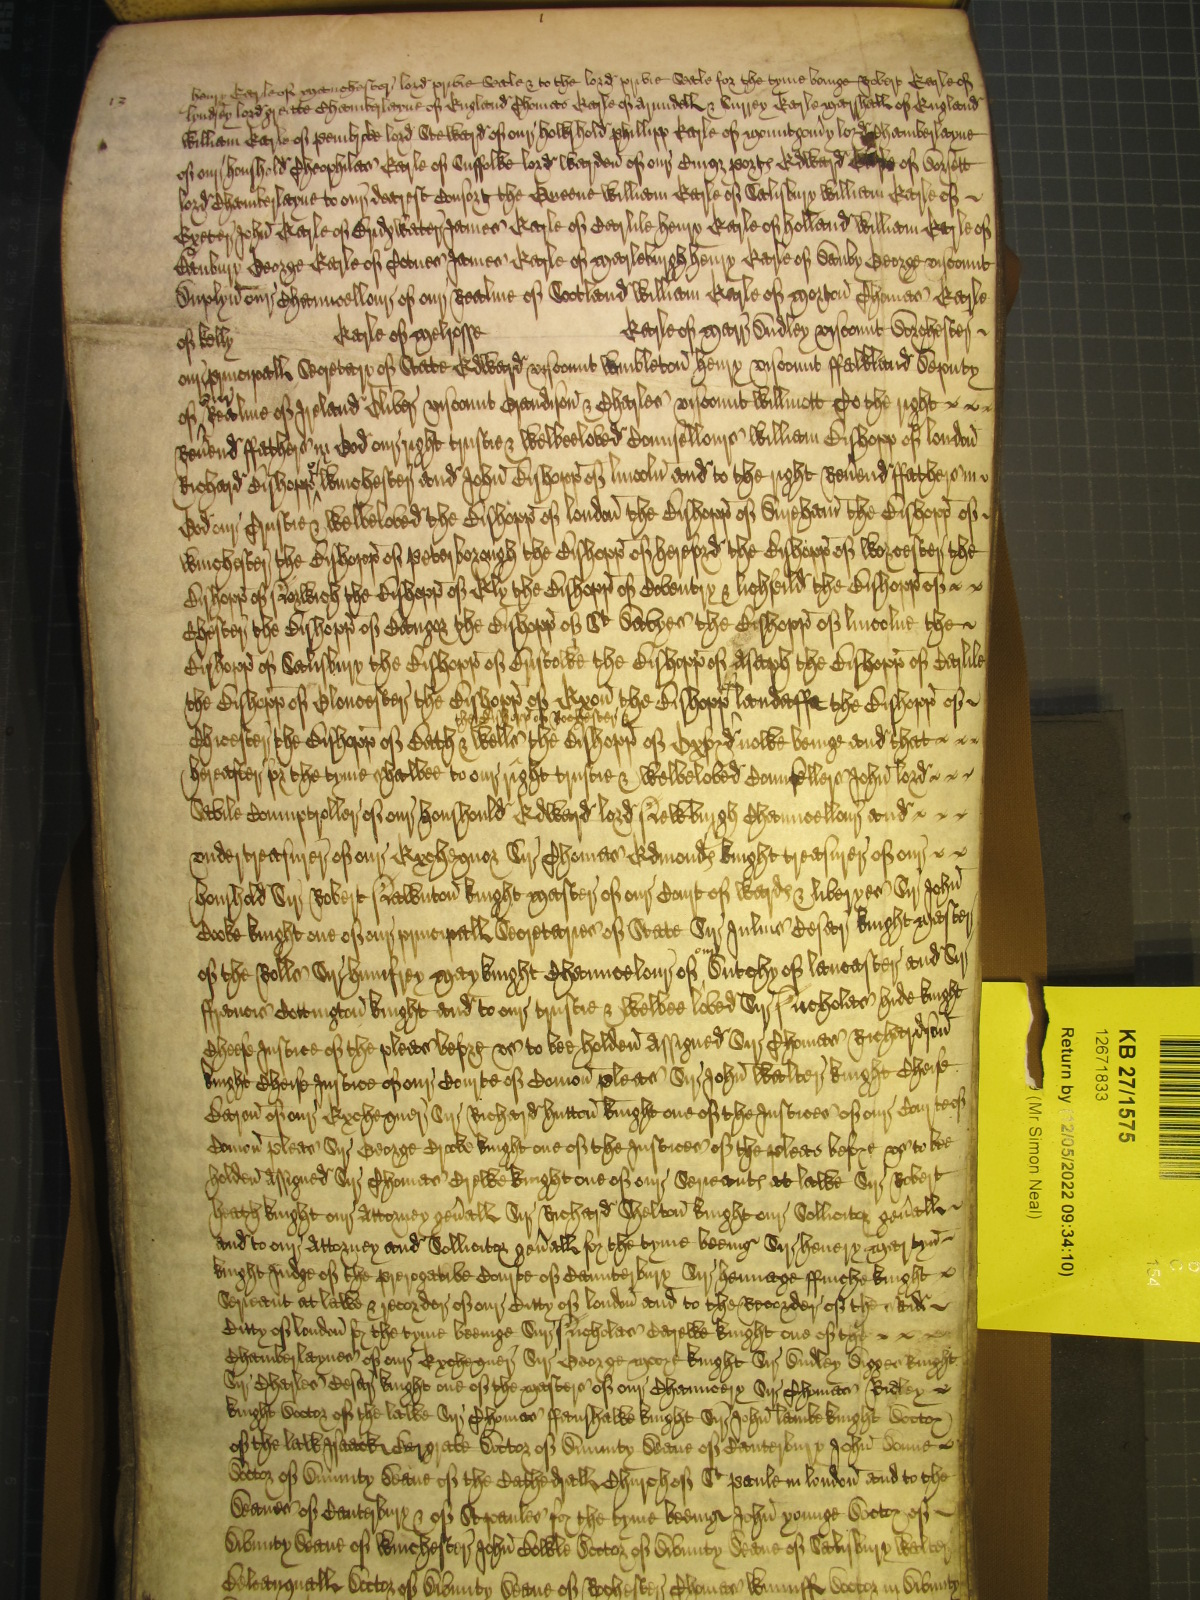 henry Earle of Manchester lord privie Seale & to the lord privie Seale for the tyme beinge Robert Earle of
lyndsey lord greate Chamberlayne of England Thomas Earle of Arundell & Surrey Earle Marshall of England
William Earle of pembroke lord Steward of our houshold phillipp Earle of mountgomery lord Chamberlayne
of our houshold Theophilus Earle of Suffolke lord Warden of our Cinque ports Edward Earle of Dorsett
lord Chamberlayne to our dearest Consort the Queene William Earle of Salisbury William Earle of
Exeter John Earle of Bridgwater James Earle of Carlile henry Earle of holland William Earle of
Banbury George Earle of Totnes James Earle of Marleburgh henry Earle of Danby George viscount
Duplyn our Chauncellour of our Realme of Scotland William Earle of Morton Thomas Earle
of kelly Earle of Melrosse Earle of Marr Dudley viscount Dorchester
our principall Secretary of State Edward viscount Wimbleton henry viscount ffalkland Deputy
of our Realme of Ireland Oliver viscount Grandison & Charles viscount Willmott To the right
Reverend ffathers in God our right trustie & welbeloved Counsellours William Bishopp of london
Richard Bishopp of Winchester and John Bishopp of lincoln and to the right Reverend ffathers in
God our trustie & welbeloved the Bishopp of london the Bishopp of Dureham the Bishopp of
Winchester the Bishopp of Peterborough the Bishopp of hereford the Bishopp of Worcester the
Bishopp of Norwich the Bishopp of Ely the Bishopp of Coventry & lichfeild the Bishopp of
Chester the Bishopp of Bangor the Bishopp of St Davyes the Bishopp of lincolne the
Bishopp of Salisbury the Bishopp of Bristolle the Bishopp of Asaph the Bishopp of Carlile
the Bishopp of Gloucester the Bishopp of Exon the Bishopp of landaffe the Bishopp of
the Bishopp of Rochester
Chicester the Bishopp of Bath & Wells the Bishopp of Oxford nowe beinge and that
hereafter for the tyme shalbee to our right trustie & welbeloved Counsellers John lord
Savile Comptroller of our houshould Edward lord Newburgh Chauncellour and
undertreasurer of our Exchequor Sir Thomas Edmonds knight treasurer of our
houshold Sir Robert Naunton knight Master of our Court of Wards & liberyes Sir John
Cooke knight one of our principall Secretaries of State Sir Julius Cesar knight Master
of the Rolls Sir humfrey May knight Chauncelour of our Dutchy of lancaster and Sir
ffrancis Cottington knight and to our trustie & welbee loved Sir Nicholas hide knight
Cheefe Justice of the pleas before us to bee holden Assigned Sir Thomas Richardson
knight Cheife Justice of our Courte of Comon pleas Sir John Walter knight Cheife
Baron of our Exchequer Sir Richard hutton knight one of the Justices of our Courte of
Comon pleas Sir George Croke knight one of the Justices of the pleas before us to bee
holden Assigned Sir Thomas Crewe knight one of our Serieants at lawe Sir Robert
heath knight our Attorney generall Sir Richard Shelton knight our Sollicitor generall
and to our Attorney and Sollicitor generall for the tyme beeing Sir henery Martyn
knight Judge of the prerogative Courte of Canterbury Sir henneage ffinche knight
Serieant at lawe & recorder of our Citty of london and to the Recorder of the said
Citty of london for the tyme beeinge Sir Nicholas Carewe knight one of the
Chamberlaynes of our Exchequer Sir George more knight Sir Dudley Digges knight
Sir Charles Cesar knight one of the Masters of our Chauncery Sir Thomas Ridley
knight Doctor of the lawe Sir Thomas ffanshawe knight Sir John lambe knight Doctor
of the law Isaack Bargrave Doctor of Divinity Deane of Canterbury John Donne
Doctor of Divinity Deane of the Cathedrall Church of St Paule in london and to the
Deanes of Canterbury & of St paules for the tyme beeing John younge Doctor of
Divinity Deane of Winchester John Bowle Doctor of Divinity Deane of Salisbury Walter
Balcanquall Doctor of Divinity Deane of Rochester Thomas Winniff Doctor in Divinity
KB 27/1575
12671833
Return by (12/05/2022 09:34:10)
(Mr Simon Neal)